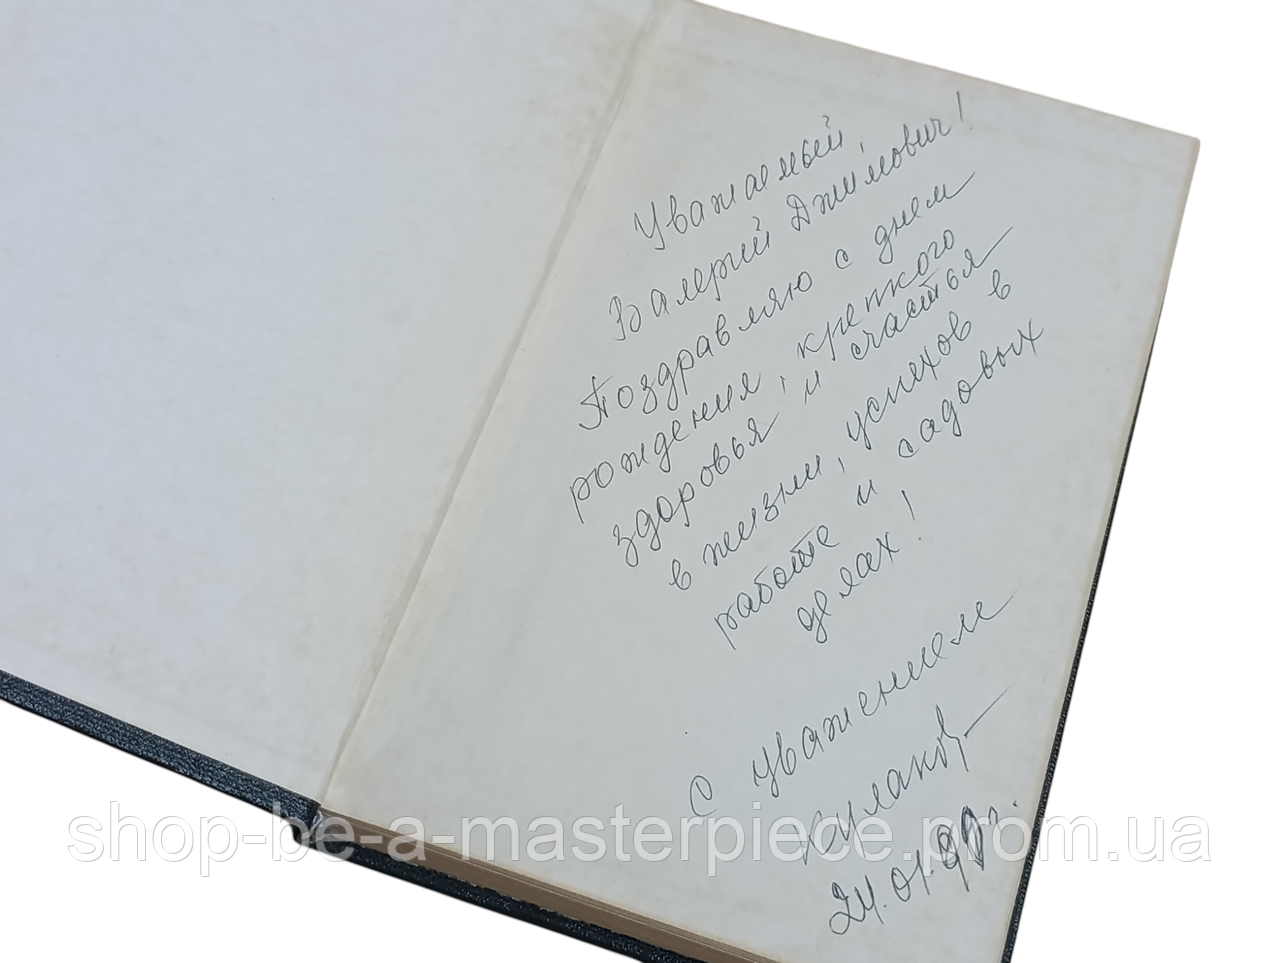 Уважаемый,
Валерий Джимович!
Поздравляю с днем
рождения, крепкого
здоровья и счастья
в жизни, успехов в
работе и садовых
делах!
С уважением
Кулаков
24.01.90г.
shop-be-a-masterpiece.prom.ua